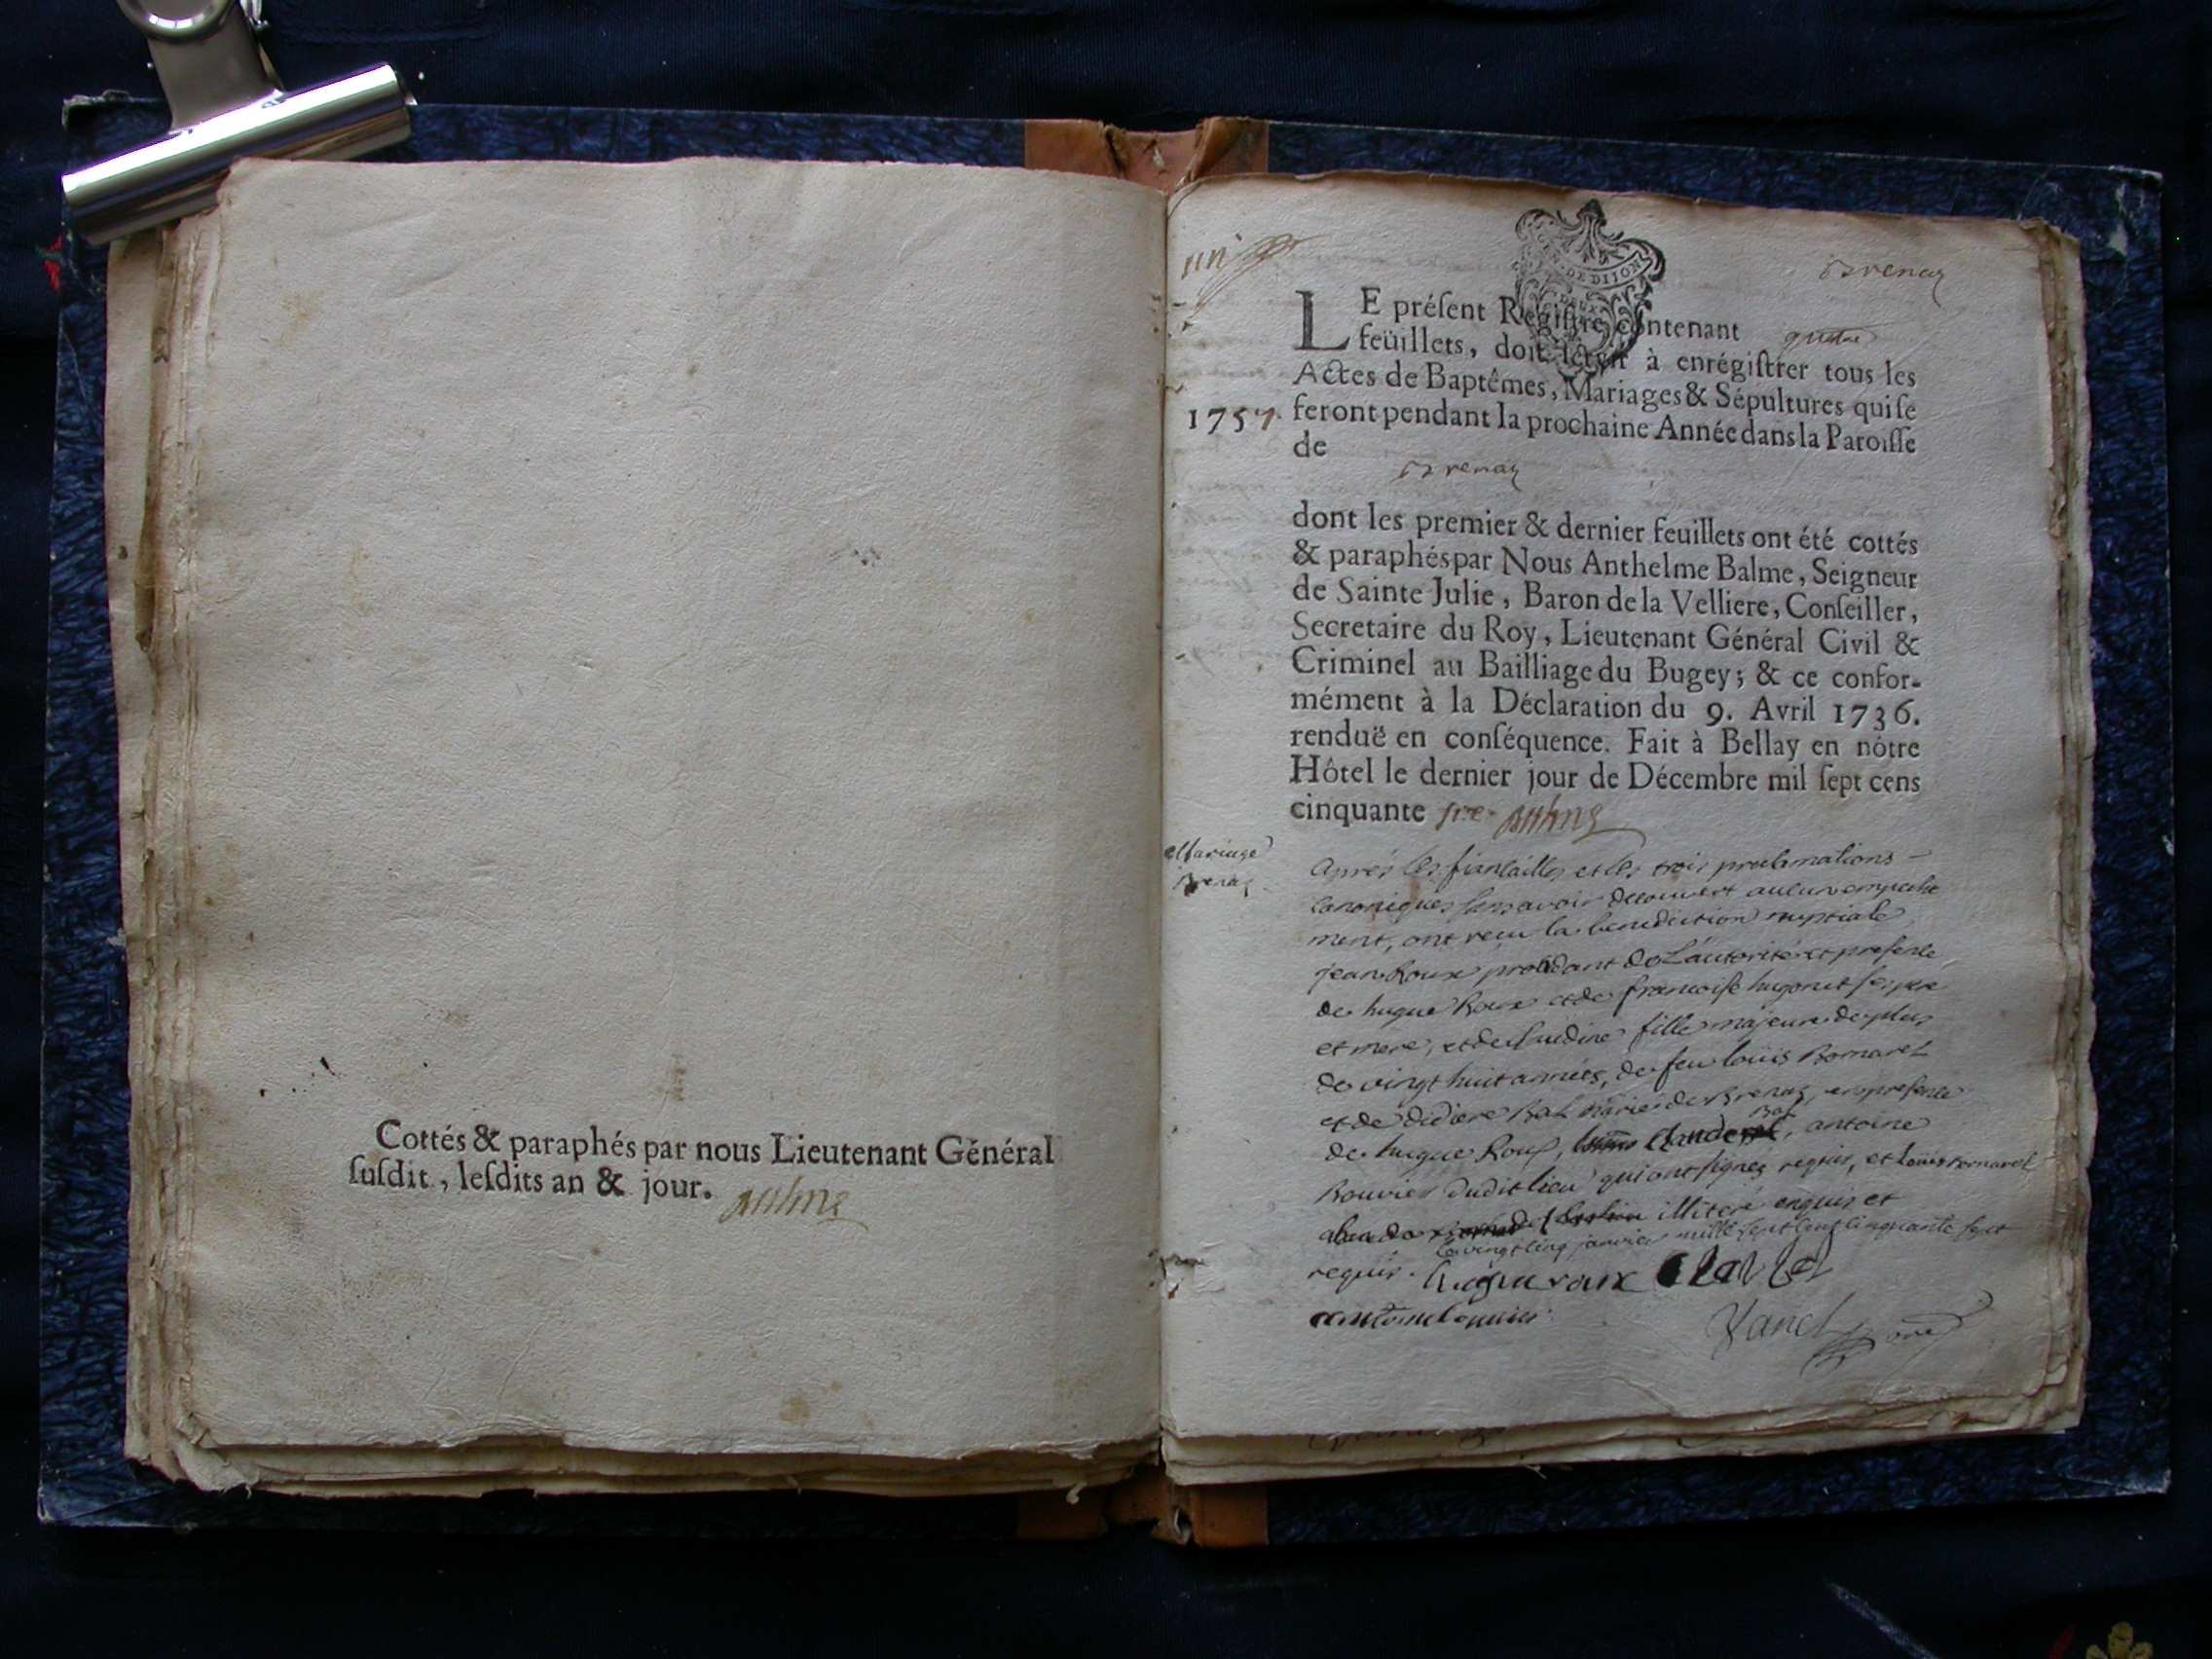 Cottés & paraphés par nous Lieutenant Général
ſuſdit, leſdits an & jour.
un
GEN. DE DIION
Brenaz
LE préſent Regiſtre contenant quatre
feüillets, doit ſervir à enrégiſtrer tous les
Actes de Baptêmes, Mariages & Sépultures qui ſe
1757. feront pendant la prochaine Année dans la Paroiſſe
de
Brenaz
dont les premier & dernier feuillets ont été cottés
& paraphés par Nous Anthelme Balme, Seigneur
de Sainte Julie, Baron de la Velliere, Conſeiller,
Secretaire du Roy, Lieutenant Général Civil &
Criminel au Bailliage du Bugey; & ce confor-
mément à la Déclaration du 9. Avril 1736.
renduë en conſéquence. Fait à Bellay en nôtre
Hôtel le dernier jour de Décembre mil ſept cens
cinquante
Mariage
Brenaz
après les fiancailles et les trois proclamations
canoniques sans avoir decouvert aucun empeche
ment, ont recu la benediction nuptiale
jean Roux procedant de L'autorité et presence
de hugue Roux et de francoise hugonet ses pere
et mere, et Claudine fille majeure de plus
de vingt huit années, de feu loüis Bornarel
et de didiere Bal mariés de Brenaz, en presence
de hugue Roux, Claude Bal, antoine
Bouvier dudit lieu qui ont signés requis, et Loüis Bornarel
illiteré enquis et
requis. le vingt cinq janvier mille sept cent cinquante sept
hugue roux Cla bal
antoine bouvier